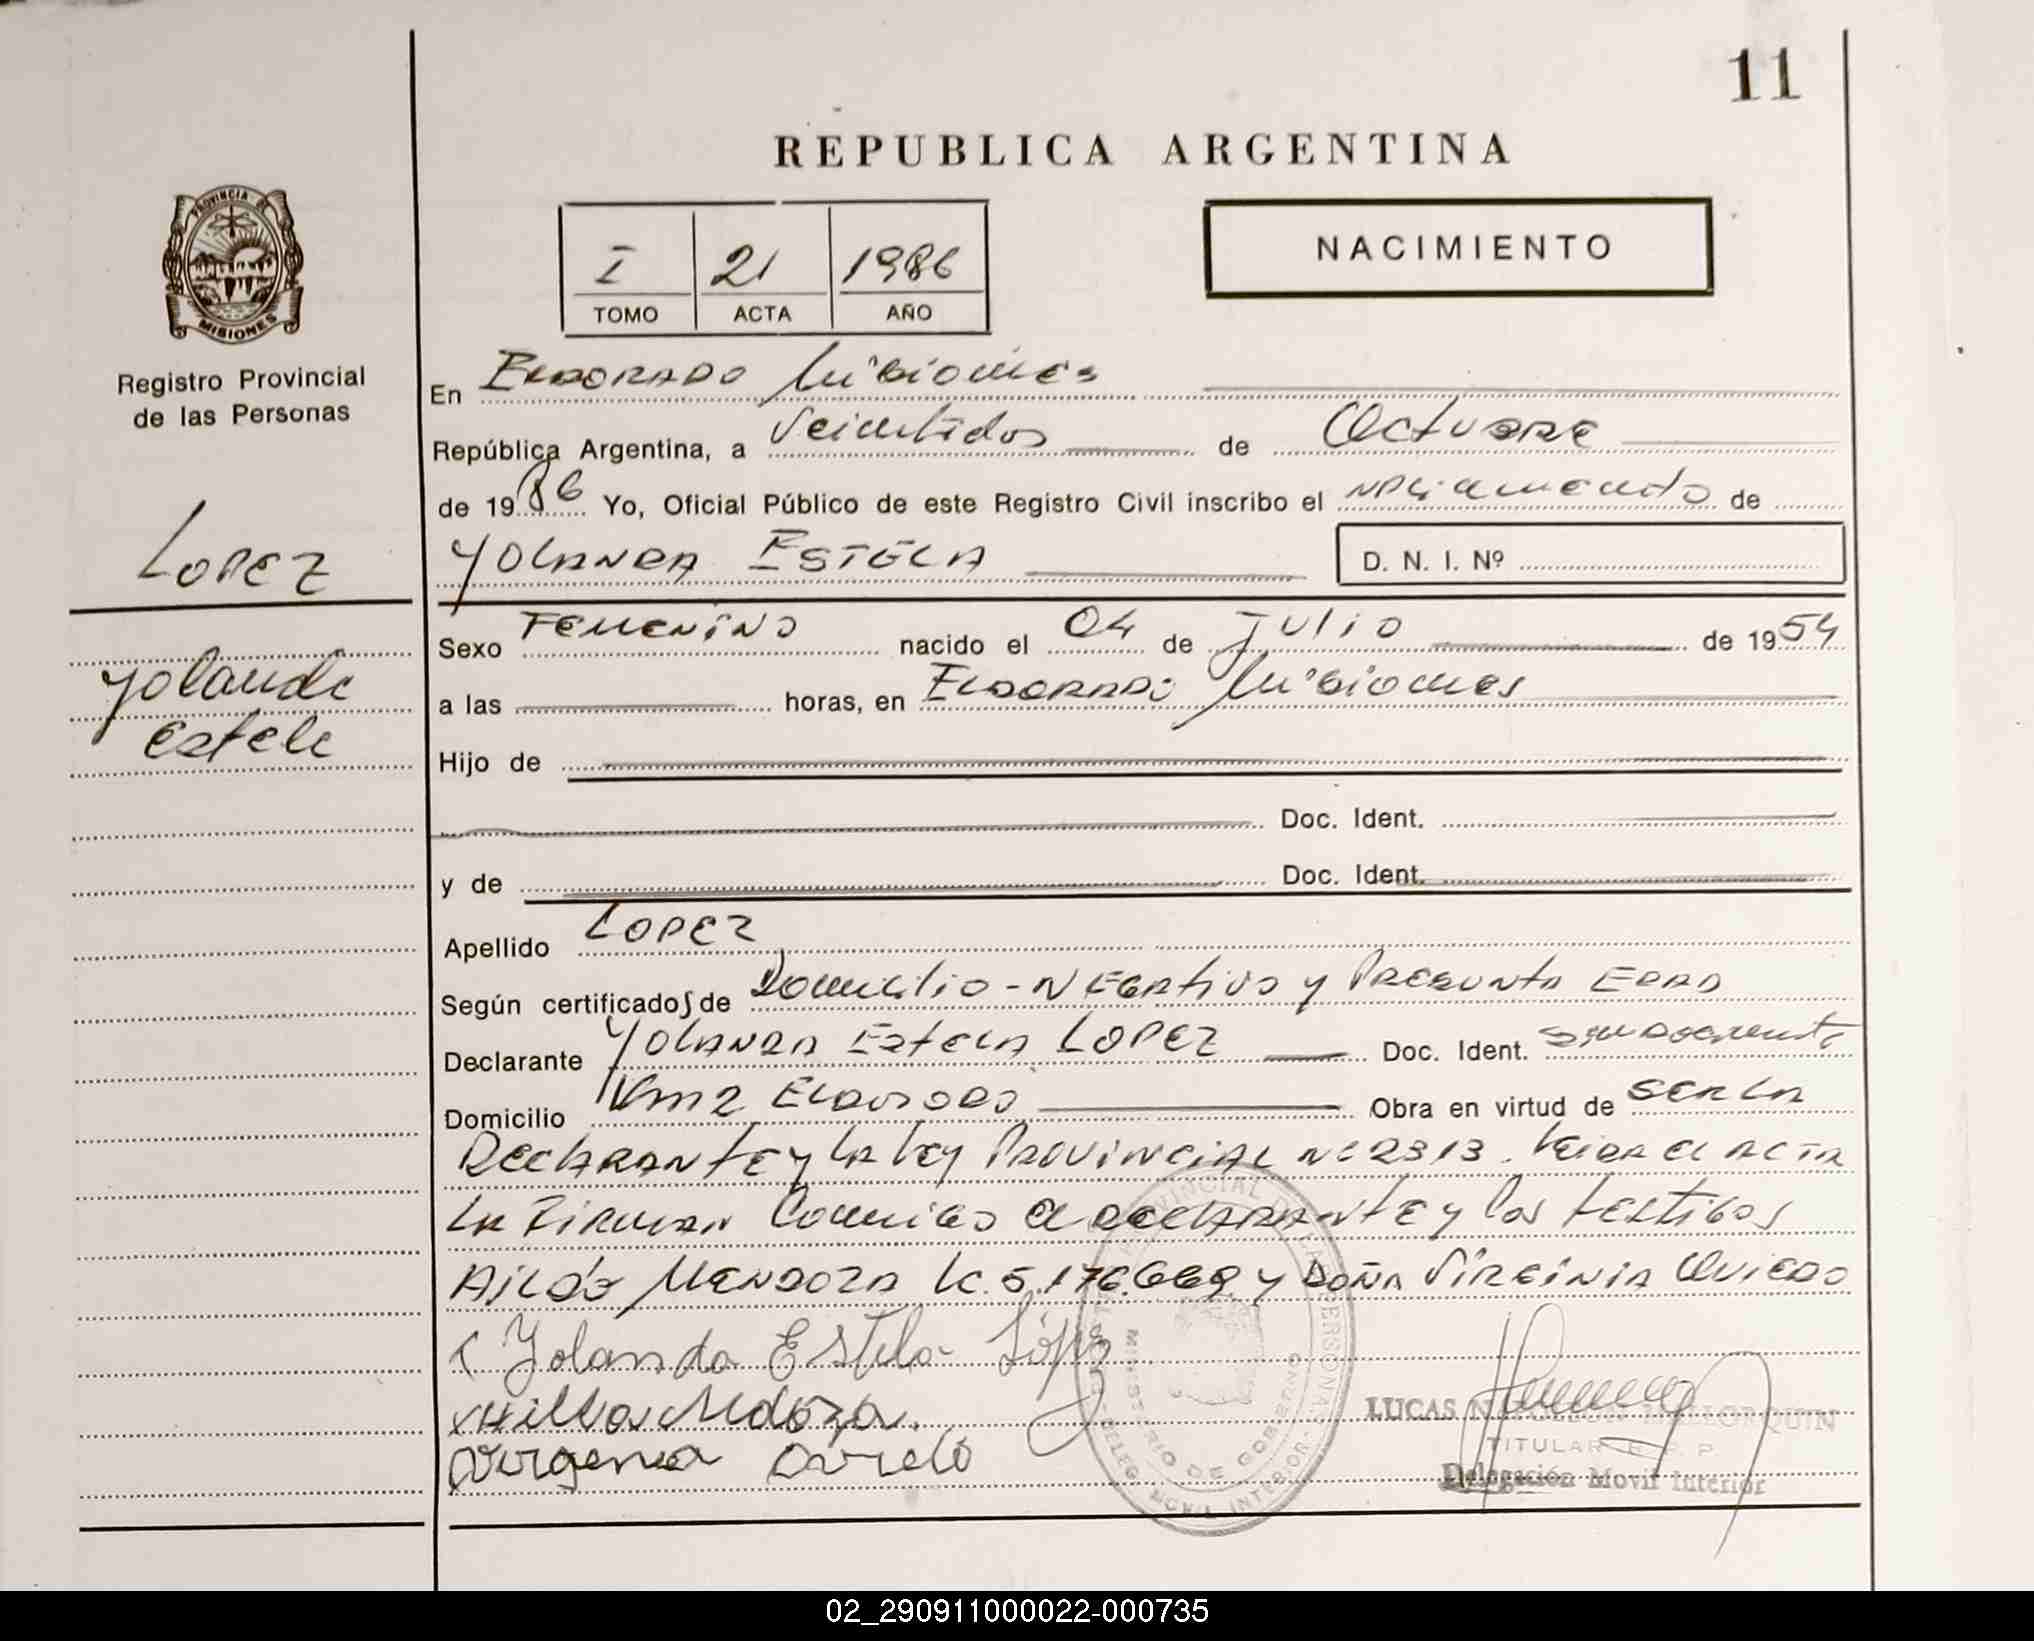 11
REPUBLICA ARGENTINA
I 21 1986
TOMO ACTA AÑO
NACIMIENTO
PROVINCIA DE MISIONES
Registro Provincial
de las Personas
LOPEZ
Yolanda
Estela
En ELDORADO Misiones
República Argentina, a Veintidos de Octubre
de 1986 Yo, Oficial Público de este Registro Civil inscribo el nacimiento de
YOLANDA ESTELA D. N. I. Nº
Sexo FEMENINO nacido el 04 de Julio de 1954
a las horas, en ELDORADO Misiones
Hijo de
Doc. Ident.
y de Doc. Ident.
Apellido LOPEZ
Según certificados de Domicilio - NEGATIVO y PRESUNTA EDAD
Declarante YOLANDA Estela LOPEZ Doc. Ident.
Domicilio Km 2 ELDORADO Obra en virtud de SER LA
DECLARANTE y LA Ley PROVINCIAL Nº 2313. Leida el ACTA
LA FIRMAN Conmigo el DECLARANTE y los testigos
MENDOZA LC. 5.176.669 y DOÑA VIRGINIA OVIEDO
Yolanda Estela López
LUCAS NAPOLEON MALLORQUIN
TITULAR R. P. P.
Delegación Movil Interior
REGISTRO PROVINCIAL DE LAS PERSONAS - DELEG. MOVIL INTERIOR -
MINISTERIO DE GOBIERNO
02_290911000022-000735